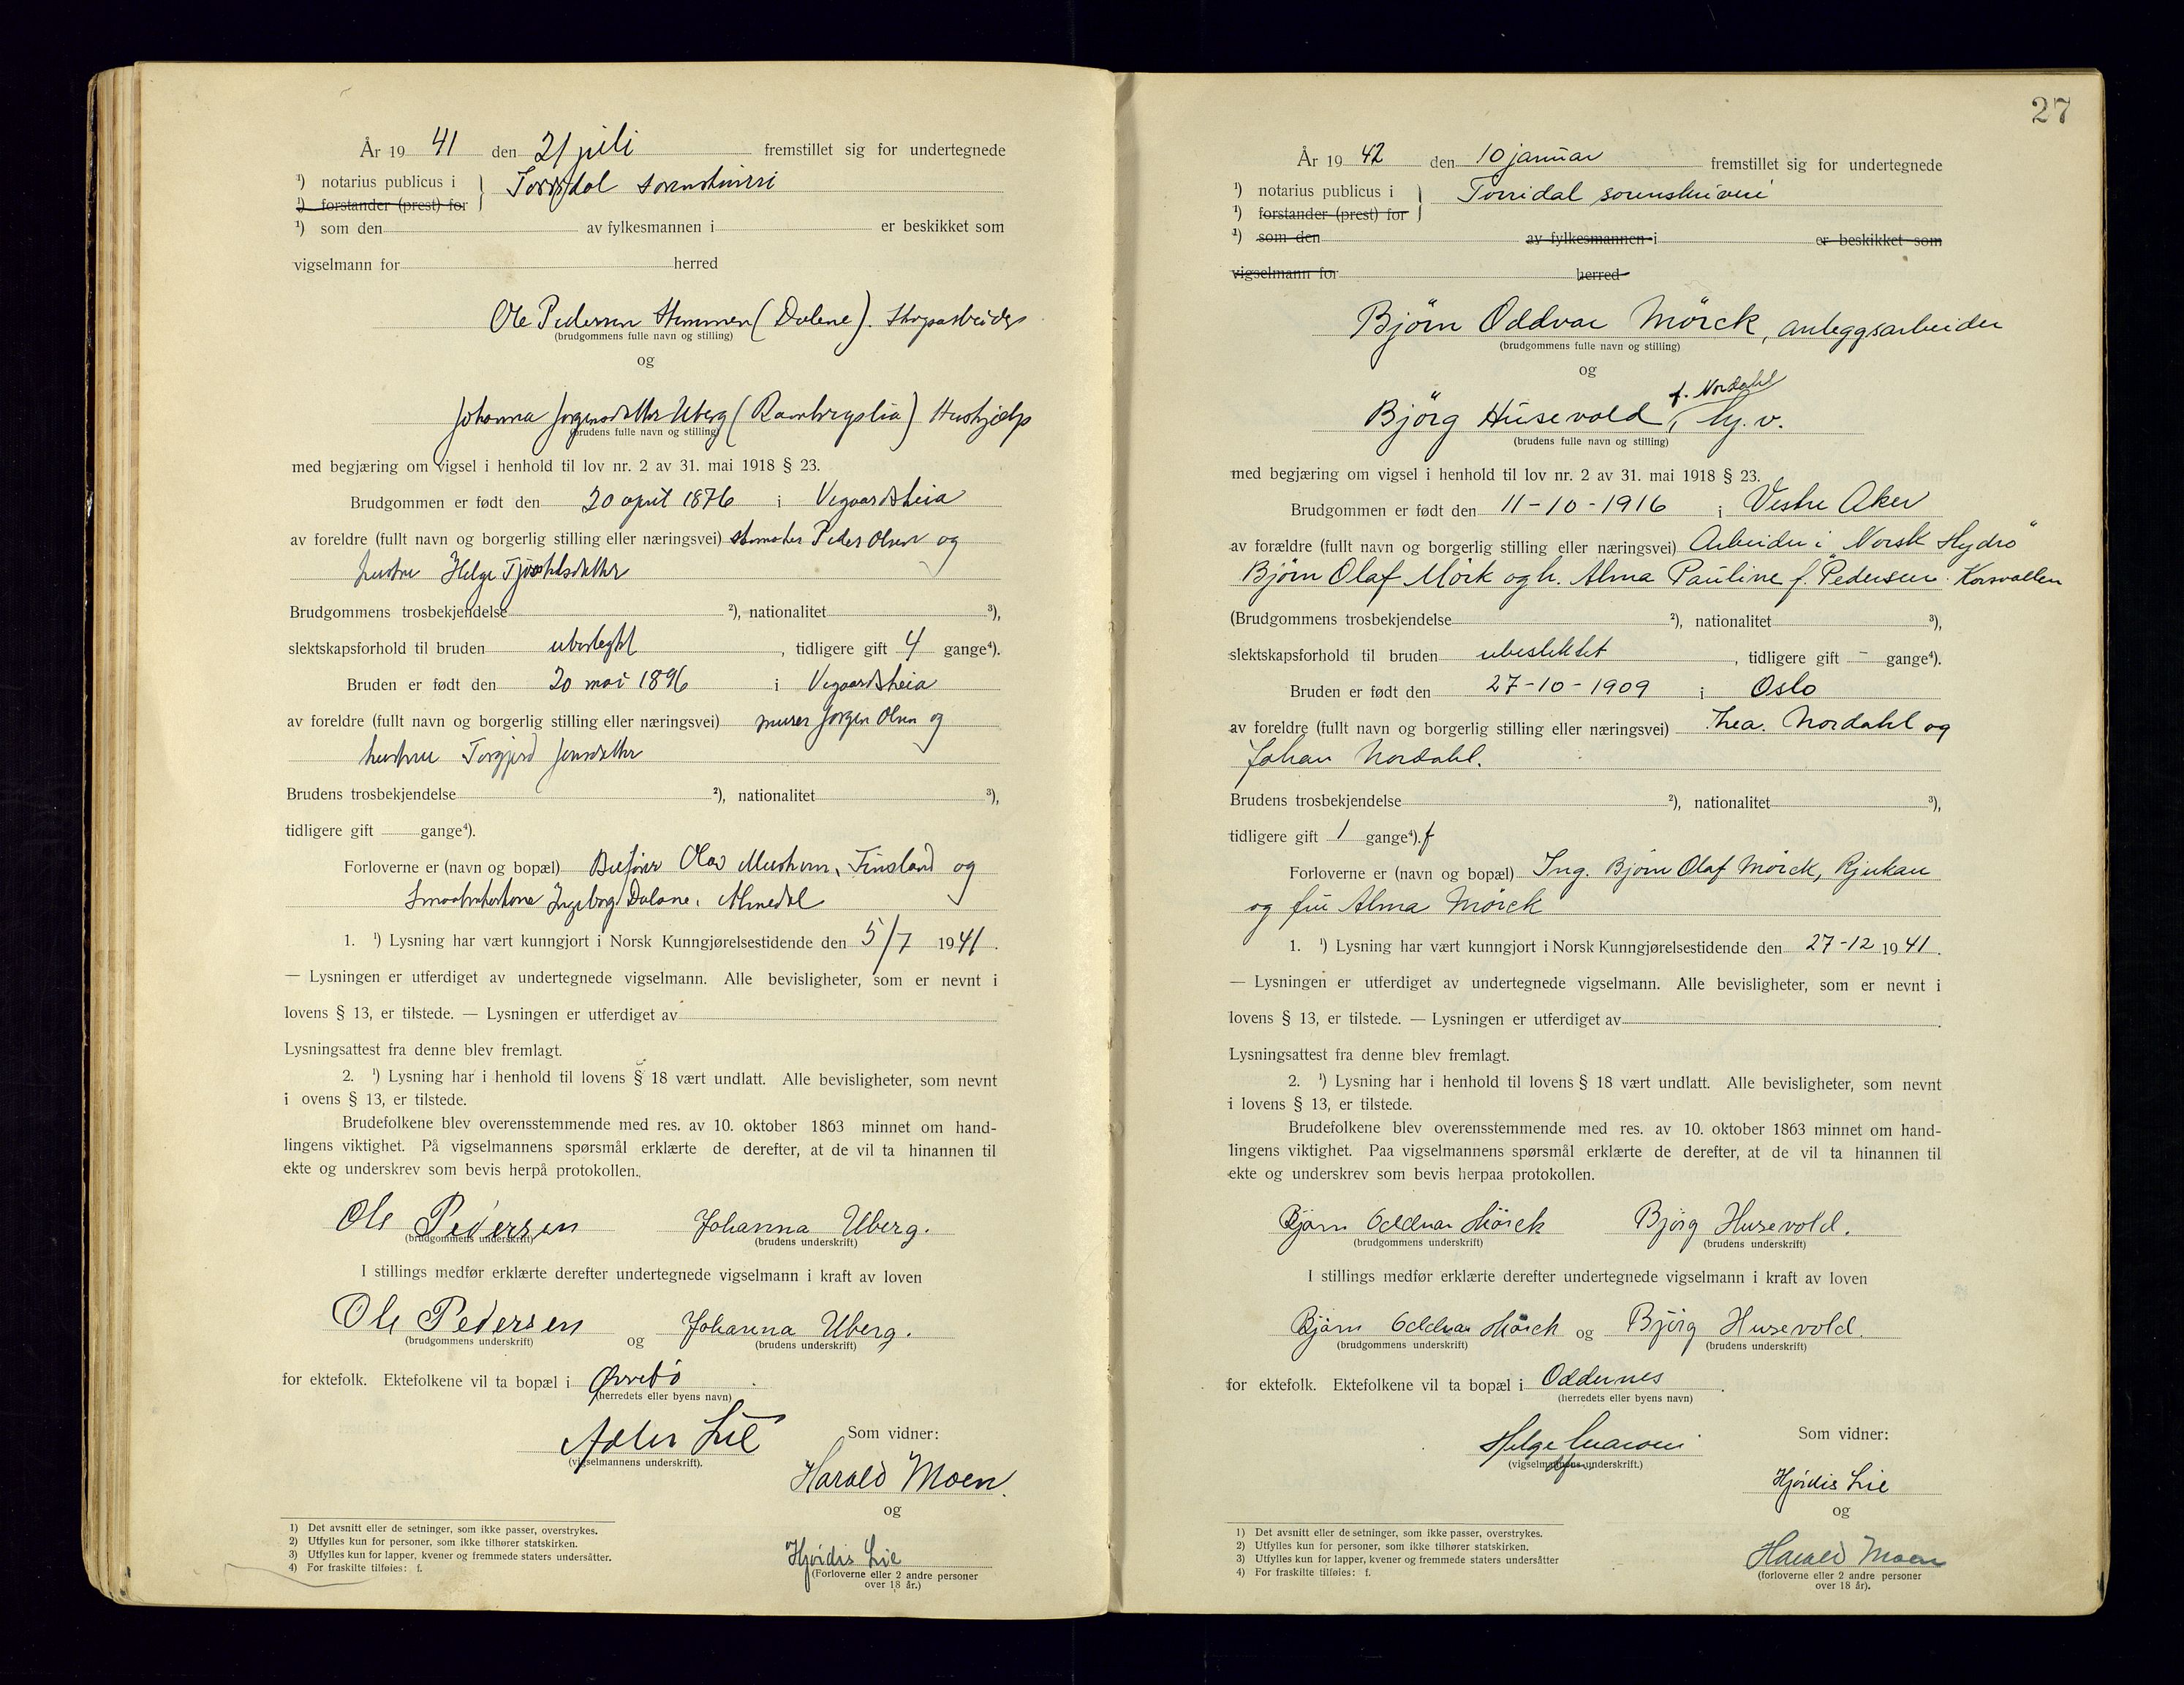 År 19 41 den 21 juli fremstillet sig for undertegnede
¹) notarius publicus i } Torridal sorenskriveri
¹) forstander (prest) for
¹) som den av fylkesmannen i er beskikket som
vigselmann for herred
Ole Pedersen (Dalene). Skogsarbeider
(brudgommens fulle navn og stilling)
og
Johanna Jørgensdatter Uberg ( ) Hushjelp
(brudens fulle navn og stilling)
med begjæring om vigsel i henhold til lov nr. 2 av 31. mai 1918 § 23.
Brudgommen er født den 20 april 1876 i Vegaardsheia
av foreldre (fullt navn og borgerlig stilling eller næringsvei) Peder Olsen og
hustru Helge
Brudgommens trosbekjendelse ²), nationalitet ³),
slektskapsforhold til bruden ubeslegtet, tidligere gift 4 gange⁴).
Bruden er født den 20 mai 1896 i Vegaardsheia
av foreldre (fullt navn og borgerlig stilling eller næringsvei) murer Jørgen Olsen og
hustru Torgjerd Jensdatter
Brudens trosbekjendelse ²), nationalitet ³),
tidligere gift gange⁴).
Forloverne er (navn og bopæl) Olav Finsland og
Ingeborg Dalane,
1. ¹) Lysning har vært kunngjort i Norsk Kunngjørelsestidende den 5/7 1941.
— Lysningen er utferdiget av undertegnede vigselmann. Alle bevisligheter, som er nevnt i
lovens § 13, er tilstede. — Lysningen er utferdiget av
Lysningsattest fra denne blev fremlagt.
2. ¹) Lysning har i henhold til lovens § 18 vært undlatt. Alle bevisligheter, som nevnt
i ovens § 13, er tilstede.
Brudefolkene blev overensstemmende med res. av 10. oktober 1863 minnet om hand-
lingens viktighet. På vigselmannens spørsmål erklærte de derefter, at de vil ta hinannen til
ekte og underskrev som bevis herpå protokollen.
Ole Pedersen Johanna Uberg.
(brudgommens underskrift) (brudens underskrift)
I stillings medfør erklærte derefter undertegnede vigselmann i kraft av loven
Ole Pedersen og Johanna Uberg.
(brudgommens underskrift) (brudens underskrift)
for ektefolk. Ektefolkene vil ta bopæl i Øvrebö.
(herredets eller byens navn)
Lie Som vidner:
(vigselmannens underskrift).
Harald Moen.
og
Hjördis Lie
(Forloverne eller 2 andre personer
over 18 år.)
1) Det avsnitt eller de setninger, som ikke passer, overstrykes.
2) Utfylles kun for personer, som ikke tilhører statskirken.
3) Utfylles kun for lapper, kvener og fremmede staters undersåtter.
4) For fraskilte tilføies: f.
27
År 19 42 den 10 januar fremstillet sig for undertegnede
¹) notarius publicus i } Torridal sorenskriveri
¹) forstander (prest) for
¹) som den av fylkesmannen i er beskikket som
vigselmann for herred
Björn Oddvar Mörck, anleggsarbeider
(brudgommens fulle navn og stilling)
og
f. Nordahl
Björg Husevold, hj. v.
(brudens fulle navn og stilling)
med begjæring om vigsel i henhold til lov nr. 2 av 31. mai 1918 § 23.
Brudgommen er født den 11-10-1916 i Vestre Aker
av forældre (fullt navn og borgerlig stilling eller næringsvei) Arbeider i "Norsk Hydro"
Björn Olaf Mörk og h. Alma Pauline f. Pedersen. Korsvollen
(Brudgommens trosbekjendelse ²), nationalitet ³),
slektskapsforhold til bruden ubeslektet, tidligere gift - gange⁴).
Bruden er født den 27-10-1909 i Oslo
av foreldre (fullt navn og borgerlig stilling eller næringsvei) Thea. Nordahl og
Johan Nordahl.
Brudens trosbekjendelse ²), nationalitet ³),
tidligere gift 1 gange⁴). f
Forloverne er (navn og bopæl) Ing. Björn Olaf Mörck, Rjukan
og fru Alma Mörck
1. ¹) Lysning har vært kunngjort i Norsk Kunngjørelsestidende den 27-12 1941.
— Lysningen er utferdiget av undertegnede vigselmann. Alle bevisligheter, som er nevnt i
lovens § 13, er tilstede. — Lysningen er utferdiget av.
Lysningsattest fra denne blev fremlagt.
2. ¹) Lysning har i henhold til lovens § 18 vært undlatt. Alle bevisligheter, som nevnt
i lovens § 13, er tilstede.
Brudefolkene blev overensstemmende med res. av 10. oktober 1863 minnet om hand-
lingens viktighet. Paa vigselmannens spørsmål erklærte de derefter, at de vil ta hinannen til
ekte og underskrev som bevis herpaa protokollen.
Björn Oddvar Mörck Björg Husevold.
(brudgommens underskrift) (brudens underskrift)
I stillings medfør erklærte derefter undertegnede vigselmann i kraft av loven
Björn Oddvar Mörck og Björg Husevold.
(brudgommens underskrift) (brudens underskrift)
for ektefolk. Ektefolkene vil ta bopæl i Oddernes.
(herredets eller byens navn)
Helge Som vidner:
(vigselmannens underskrift.)
Hjördis Lie
og
Harald Moen
(forloverne eller 2 andre personer
over 18 år).
1) Det avsnitt eller de setninger, som ikke passer, overstrykes.
2) Utfylles kun for personer, som ikke tilhører statskirken.
3) Utfylles kun for lapper, kvener og fremmede staters undersåtter
4) For fraskilte tilføies: f.